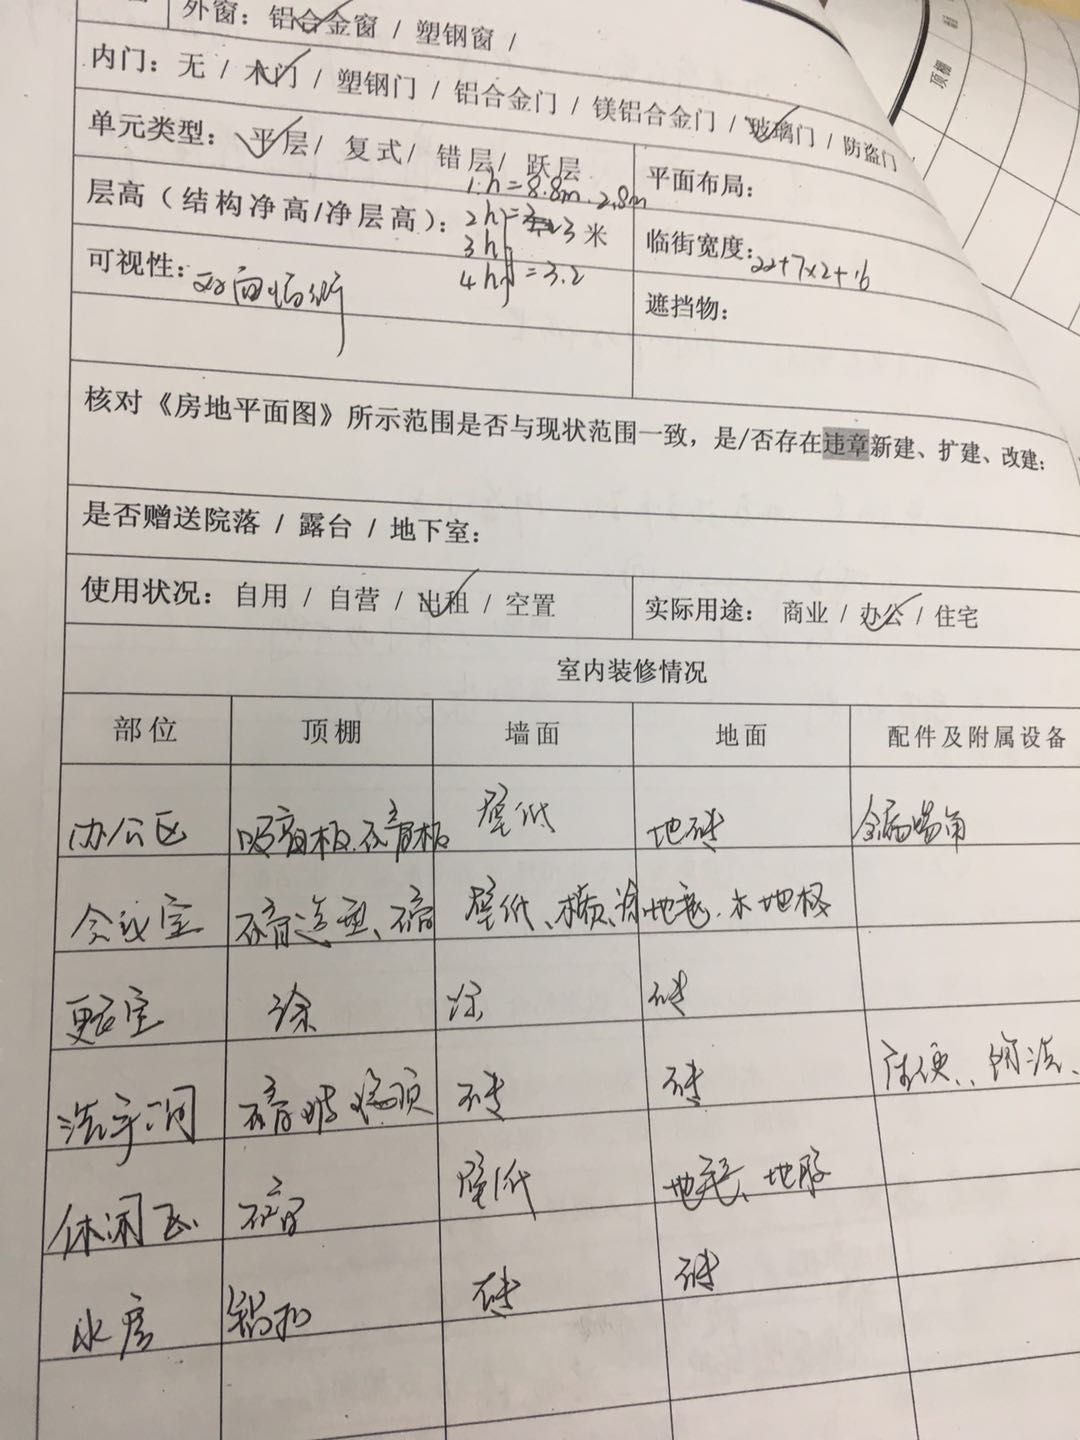 外窗：铝合金窗 / 塑钢窗 /
内门：无 / 木门 / 塑钢门 / 铝合金门 / 镁铝合金门 / 玻璃门 / 防盗门 /
单元类型：平层/ 复式/ 错层/ 跃层
平面布局：
层高（结构净高/净层高）：
1h=8.8m.2.8m
2h=3米
3h
4h=3.2
临街宽度：22+7×2+16
可视性：双面临街
遮挡物：
核对《房地平面图》所示范围是否与现状范围一致，是/否存在违章新建、扩建、改建：
是否赠送院落 / 露台 / 地下室：
使用状况：自用 / 自营 / 出租 / 空置 实际用途： 商业 / 办公 / 住宅
室内装修情况
部位 顶棚 墙面 地面 配件及附属设备
办公区 吸音板.石膏板 壁纸 地砖
会议室 石膏造型、石膏 壁纸、 涂 地毯.木地板
更衣室 涂 涂 砖
洗手间 石膏 顶 砖 砖
休闲区 石膏 壁纸 地毯、地胶
水房 铝扣 砖 砖
顶棚